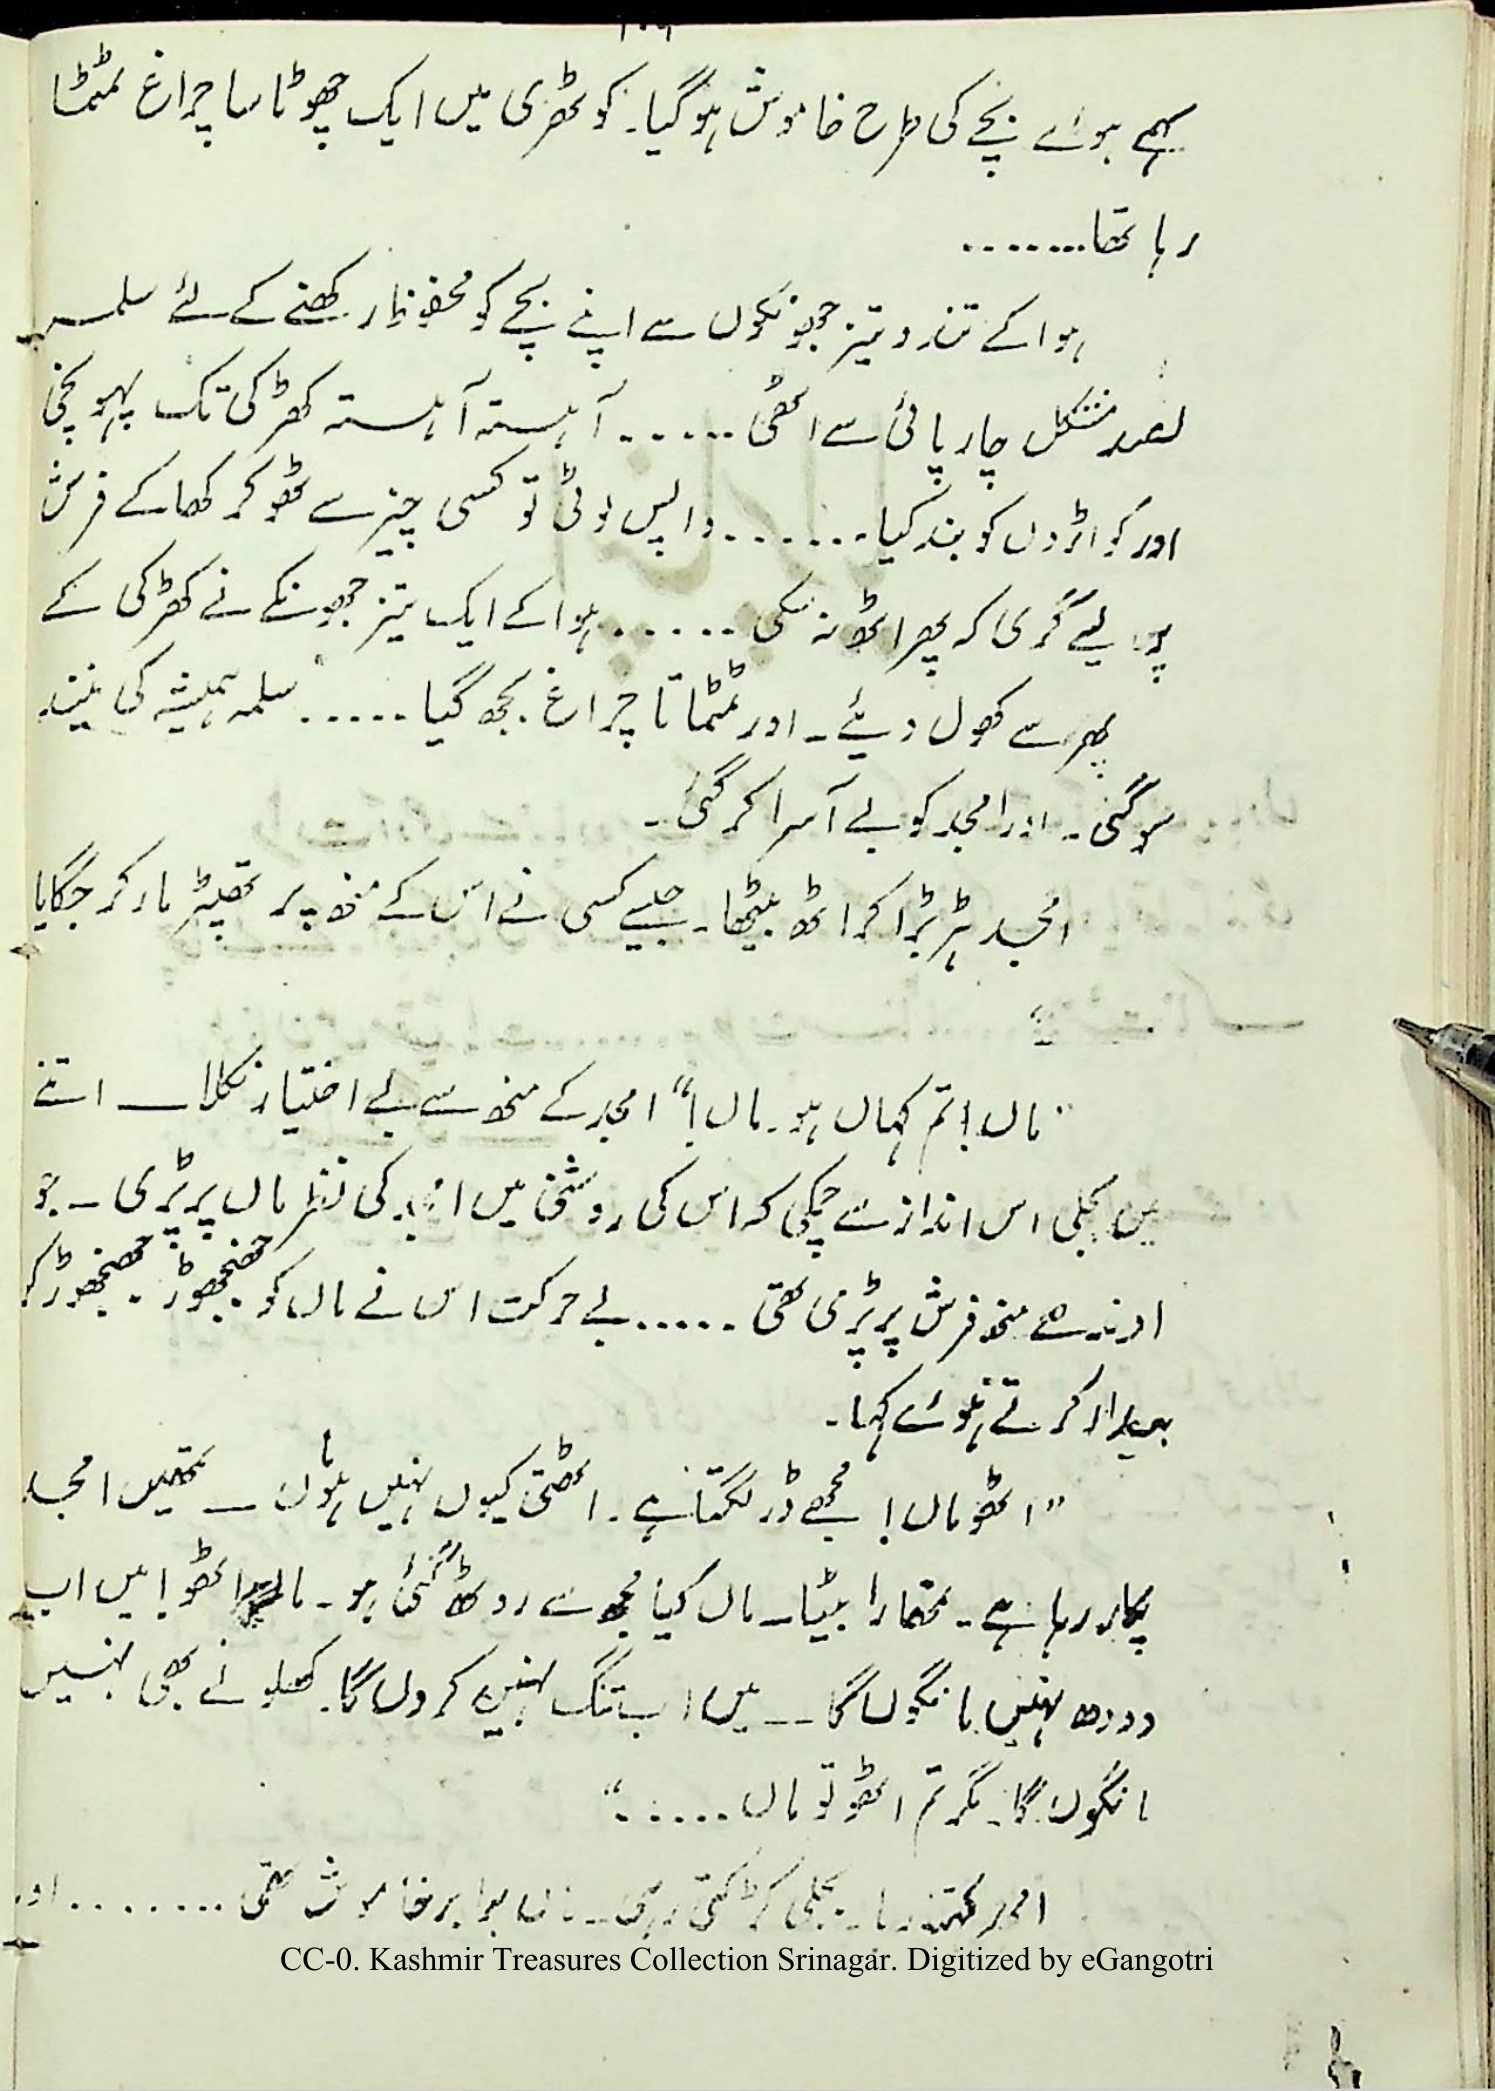 ۱۰۹
سہمے ہوئے بچے کی طرح خاموش ہوگیا۔ کوٹھری میں ایک چھوٹا سا چراغ ٹمٹما
رہا تھا........
ہوا کے تند و تیز جھونکوں سے اپنے بچے کو محفوظ رکھنے کے لئے سلمہ
بصد مشکل چارپائی سے اٹھی ...... آہستہ آہستہ کھڑکی تک پہونچی
اور کواڑوں کو بند کیا ....... واپس لوٹی تو کسی چیز سے ٹھوکر کھا کے فرش
پر ایسے گری کہ پھر اٹھ نہ سکی ...... ہوا کے ایک تیز جھونکے نے کھڑکی کے
پھر سے کھول دیئے۔ اور ٹمٹماتا چراغ بجھ گیا ..... سلمہ ہمیشہ کی نیند
سوگئی۔ اور امجد کو بے آسرا کر گئی۔
امجد ہڑبڑا کر اٹھ بیٹھا۔ جیسے کسی نے اس کے منھ پر تھپڑ مار کر جگایا
"ماں! تم کہاں ہو۔ ماں!" امجد کے منھ سے بے اختیار نکلا — اتنے
میں بجلی اس انداز سے چمکی کہ اس کی روشنی میں امجد کی نظر ماں پر پڑی۔ جو
اوندھے منھ فرش پر پڑی تھی ..... بے حرکت اس نے ماں کو جھنجھوڑ۔ جھنجھوڑ کر
بیدار کرتے ہوئے کہا۔
"اٹھو ماں! مجھے ڈر لگتا ہے۔ اٹھتی کیوں نہیں ہو ماں — تمھیں امجد
پکار رہا ہے۔ تمھارا بیٹا۔ ماں کیا مجھ سے روٹھ گئی ہو۔ ماں اٹھو! میں اب
دودھ نہیں مانگوں گا — میں اب تنگ نہیں کروں گا۔ کھلونے بھی نہیں
مانگوں گا۔ مگر تم اٹھو تو ماں ......"
امجد کہتا رہا۔ بجلی کڑکتی رہی۔ ماں برابر خاموش تھی ........ اور
CC-0. Kashmir Treasures Collection Srinagar. Digitized by eGangotri